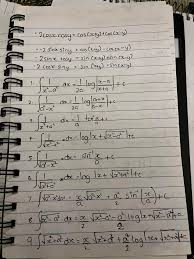 2cosx cosy = cos(x+y)+cos(x-y)
-2 sinx siny = cos(x+y) - cos(x-y)
2 sinx cosy = sin(x+y)+sin(x-y)
2 cosx siny = sin(x+y)-sin(x-y)
1. ∫ 1/(x²-a²) dx = 1/2a log|x-a/x+a|+c
2. ∫ 1/(a²-x²) dx = 1/2a log|a+x/a-x|+c
3. ∫ 1/(x²+a²) dx = 1/a tan⁻¹ x/a + c
4. ∫ 1/√(x²-a²) dx = log|x+√(x²-a²)|+c
5. ∫ 1/√(a²-x²) dx = sin⁻¹ x/a + c
6. ∫ 1/√(x²+a²) dx = log|x+√(x²+a²)|+c
7. ∫ √(a²-x²) dx = x/2 √(a²-x²) + a²/2 sin⁻¹(x/a)+c
8. ∫ √(x²-a²) dx = x/2 √(x²-a²) - a²/2 log|x+√(x²-a²)|+c
9. ∫ √(x²+a²) dx = x/2 √(x²+a²) + a²/2 log|x+√(x²+a²)|+c